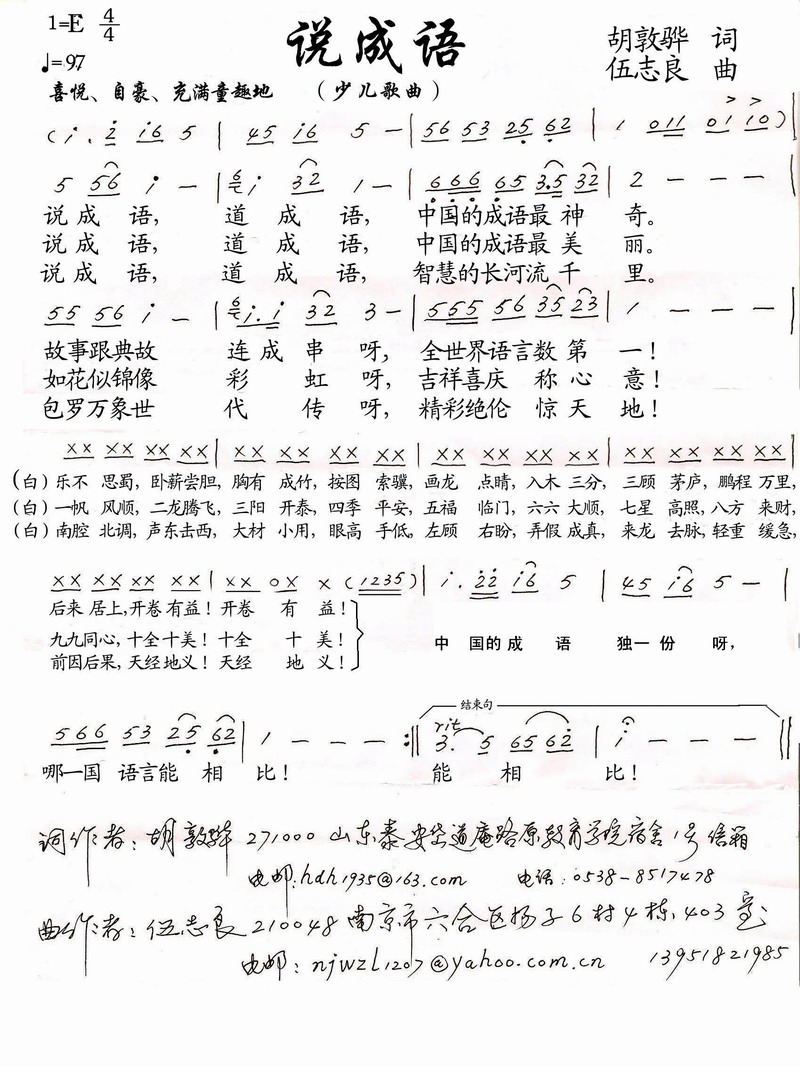 1=E 4/4
说成语
胡敦骅 词
♩=97
伍志良 曲
喜悦、自豪、充满童趣地
（少儿歌曲）
说成语, 道成语, 中国的成语最神奇。
说成语, 道成语, 中国的成语最美丽。
说成语, 道成语, 智慧的长河流千里。
故事跟典故 连成串呀, 全世界语言数第一！
如花似锦像 彩虹呀, 吉祥喜庆 称心意！
包罗万象世 代传呀, 精彩绝伦 惊天地！
(白) 乐不 思蜀, 卧薪尝胆, 胸有 成竹, 按图 索骥, 画龙 点睛, 入木 三分, 三顾 茅庐, 鹏程 万里,
(白) 一帆 风顺, 二龙腾飞, 三阳 开泰, 四季 平安, 五福 临门, 六六 大顺, 七星 高照, 八方 来财,
(白) 南腔 北调, 声东击西, 大材 小用, 眼高 手低, 左顾 右盼, 弄假 成真, 来龙 去脉, 轻重 缓急,
后来 居上, 开卷 有益！开卷 有 益！
九九同心, 十全 十美！十全 十 美！
中 国的 成 语 独一 份 呀,
前因后果, 天经 地义！天经 地 义！
结束句
rit
哪一国 语言能 相 比！ 能 相 比！
词作者：胡敦骅 271000 山东泰安岱道庵路原教育学院宿舍1号信箱
电邮：hdh1935@163.com 电话：0538-8517478
曲作者：伍志良 210048 南京市六合区扬子6村4栋403室
电邮：njwzl1207@yahoo.com.cn 13951821985